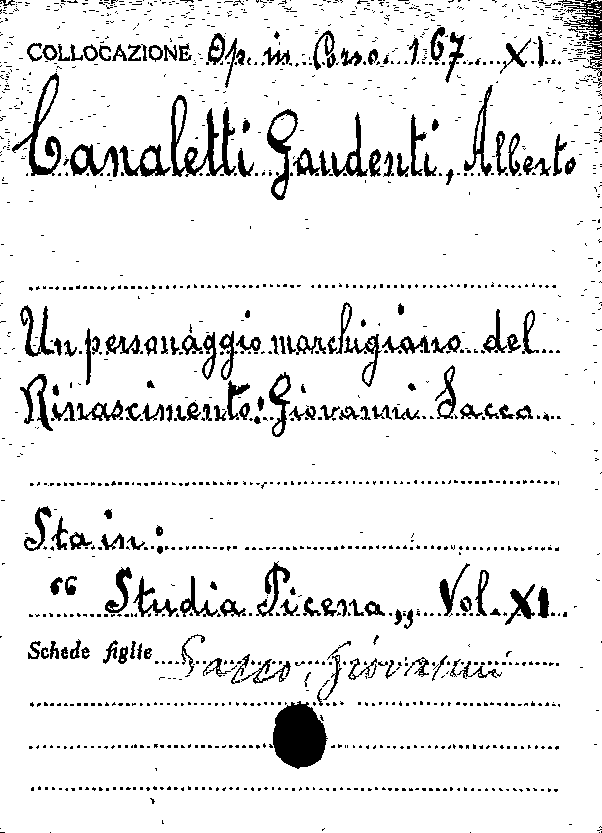 COLLOCAZIONE Op. in Corso. 167 XI.
Canaletti Gaudenti, Alberto
Un personaggio marchigiano del
Rinascimento: Giovanni Sacco.
Sta in:
“ Studia Picena „ Vol. XI.
Schede figlie Sacco, Giovanni